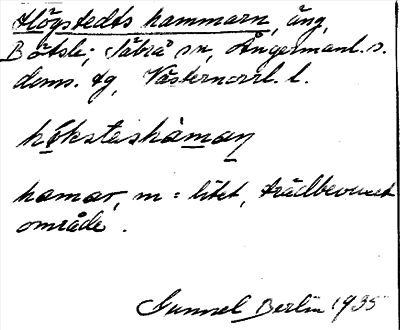 Högstedts hammarn, äng,
Bölsle; Säbrå sn, Ångermanl. s.
doms. tg, Västernorrl. l.
hökstashåmaṇ
hamar, m = litet, trädbevuxet
område.
Gunnel Berlin 1935